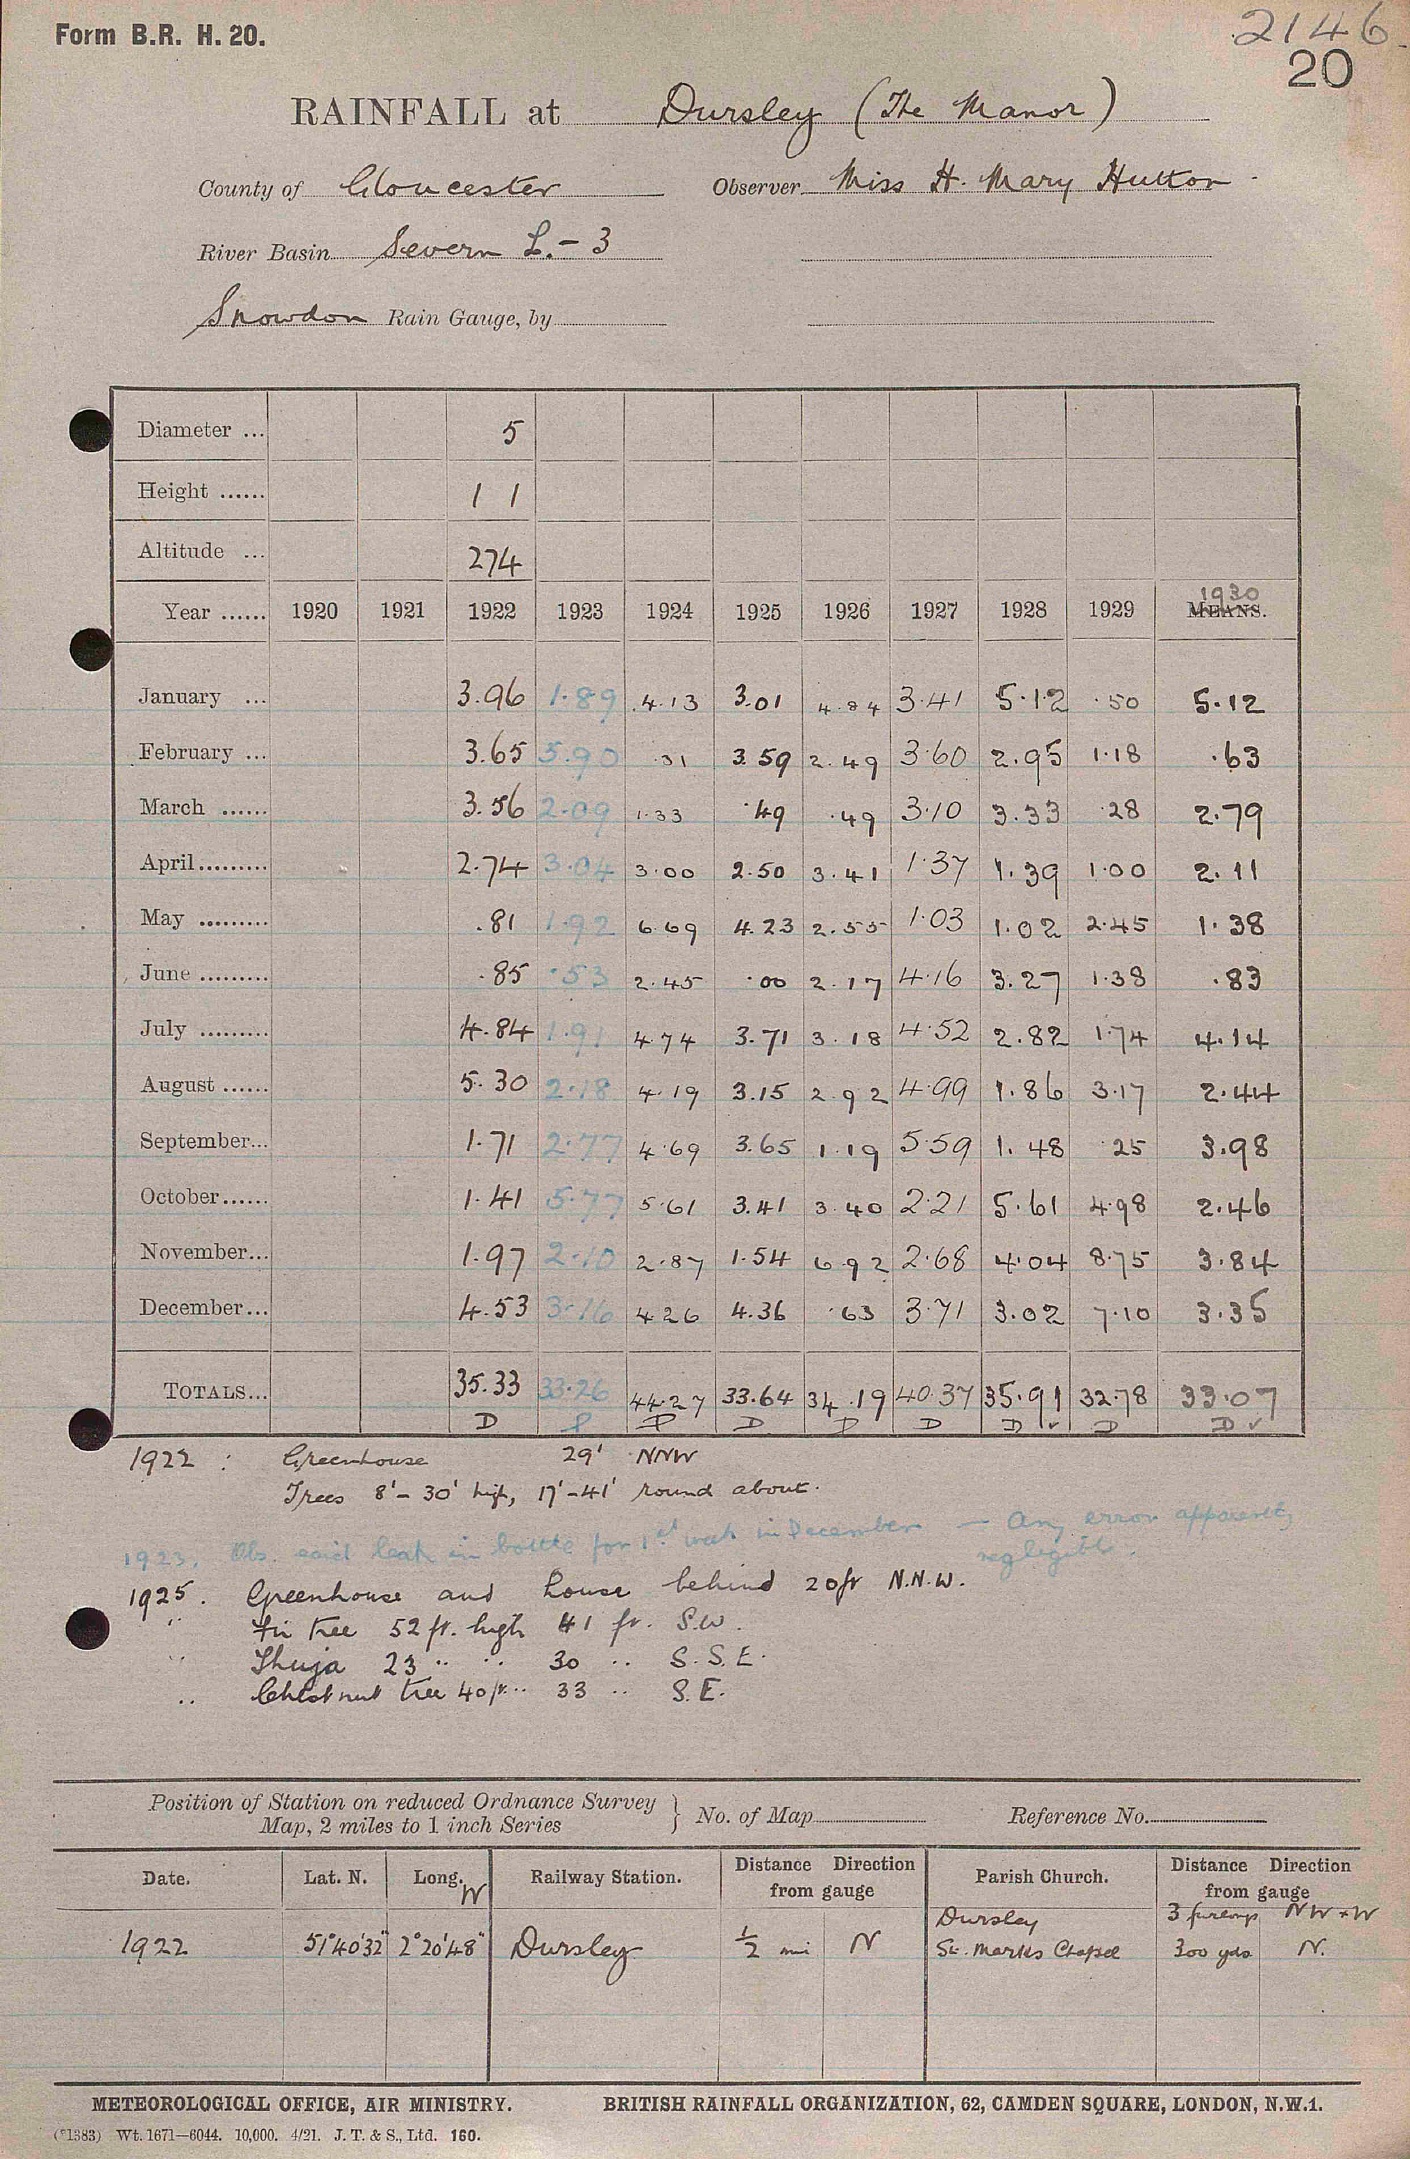 Form B.R. H. 20.
2146
20
RAINFALL at Dursley (The Manor)
County of Gloucester Observer Miss H. Mary Hutton
River Basin Severn L. - 3
Snowdon Rain Gauge, by
Diameter ... 5
Height ...... 1 1
Altitude ... 274
1930
Year ...... 1920 1921 1922 1923 1924 1925 1926 1927 1928 1929 MEANS.
January ... 3.96 1.89 4.13 3.01 4.84 3.41 5.12 .50 5.12
February ... 3.65 5.90 .31 3.59 2.49 3.60 2.95 1.18 .63
March ...... 3.56 2.09 1.33 .49 .49 3.10 3.33 .28 2.79
April ......... 2.74 3.04 3.00 2.50 3.41 1.37 1.39 1.00 2.11
May ......... .81 1.92 6.69 4.23 2.55 1.03 1.02 2.45 1.38
June ......... .85 .53 2.45 .00 2.17 4.16 3.27 1.38 .83
July ......... 4.84 1.91 4.74 3.71 3.18 4.52 2.82 1.74 4.14
August ...... 5.30 2.18 4.19 3.15 2.92 4.99 1.86 3.17 2.44
September... 1.71 2.77 4.69 3.65 1.19 5.59 1.48 .25 3.98
October...... 1.41 5.77 5.61 3.41 3.40 2.21 5.61 4.98 2.46
November... 1.97 2.10 2.87 1.54 6.92 2.68 4.04 8.75 3.84
December... 4.53 3.16 4.26 4.36 .63 3.71 3.02 7.10 3.35
TOTALS... 35.33 33.26 44.27 33.64 34.19 40.37 35.91 32.78 33.07
D P P D D D D ✓ D D ✓
1922 : Greenhouse 29' NNW
Trees 8'-30' high, 17'-41' round about.
1923. Obs. said leak in bottle for 1st week in December - Any error apparently
negligible.
1925. Greenhouse and house behind 20ft N.N.W.
" Fir tree 52 ft. high 41 ft. S.W.
" Thuja 23 " " 30 " S.S.E.
" Chestnut tree 40 ft. " 33 " S.E.
Position of Station on reduced Ordnance Survey
Map, 2 miles to 1 inch Series } No. of Map Reference No.
Date. Lat. N. Long. W Railway Station. Distance Direction from gauge Parish Church. Distance Direction from gauge
Dursley 3 furlongs NW x W
1922 51°40'32" 2°20'48" Dursley ½ mi N St. Marks Chapel 300 yds N.
METEOROLOGICAL OFFICE, AIR MINISTRY. BRITISH RAINFALL ORGANIZATION, 62, CAMDEN SQUARE, LONDON, N.W.1.
(*1383) Wt. 1671-6044. 10,000. 4/21. J. T. & S., Ltd. 160.